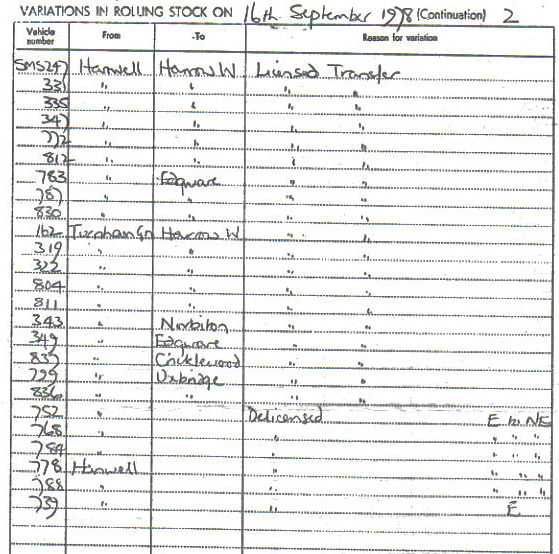 VARIATIONS IN ROLLING STOCK ON 16th September 1978 (Continuation) 2
Vehicle number From -To Reason for variation
SMS247 Hanwell Harrow W Licensed Transfer
331 " " " "
335 " " " "
347 " " " "
772 " " " "
812 " " " "
783 " Edgware " "
787 " " " "
830 " " " "
162 Turnham Gn Harrow W " "
319 " " " "
322 " " " "
804 " " " "
811 " " " "
343 " Norbiton " "
349 " Edgware " "
837 " Cricklewood " "
799 " Uxbridge " "
836 " " " "
752 " Delicensed E to NE
768 " " " " "
784 " " " " "
778 Hanwell " " " "
788 " " " " "
739 " " E